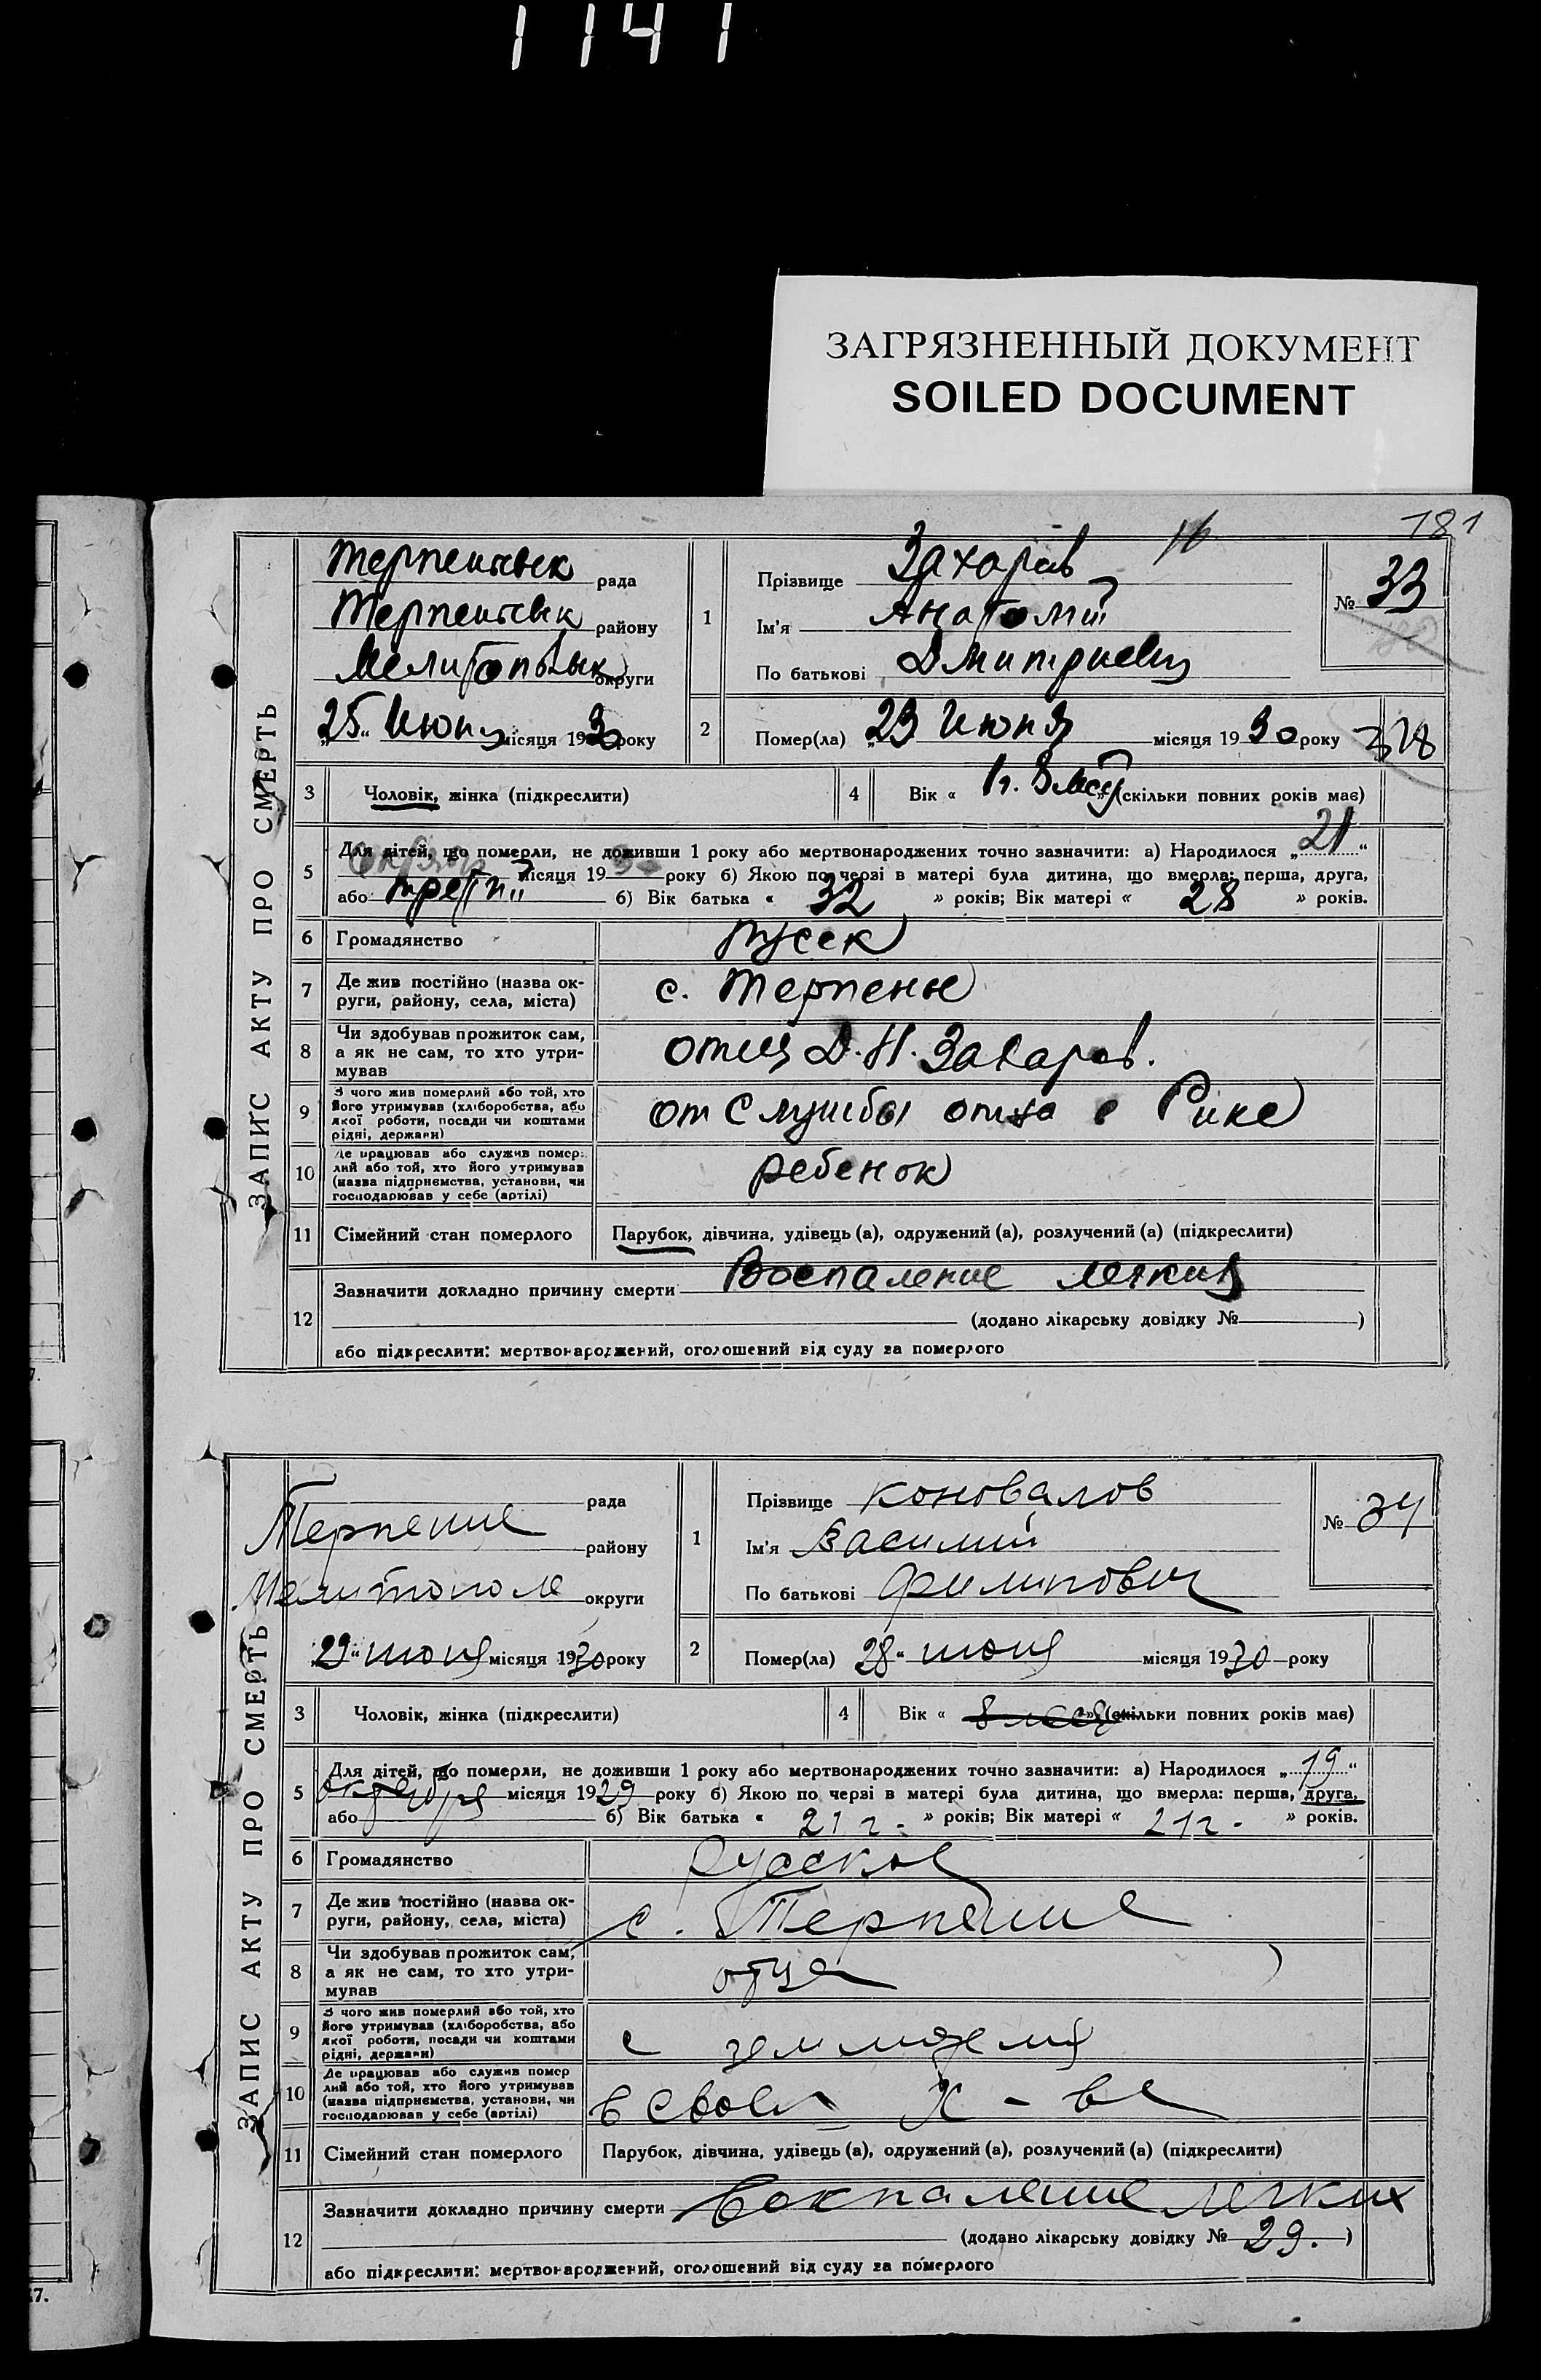 1141
ЗАГРЯЗНЕННЫЙ ДОКУМЕНТ
SOILED DOCUMENT
181
16
ЗАПИС АКТУ ПРО СМЕРТЬ
Терпеньевск рада
Терпеньевск району
Мелитопольск округи
„25“ Июня місяця 1930 року
1
Прізвище Захаров
Ім'я Анатолий
По батькові Дмитриевич
№ 33
2
Помер(ла) „23 Июня місяця 1930 року
318
3 Чоловік, жінка (підкреслити)
4 Вік « 1г. 8 мес » (скільки повних років має)
5 Для дітей, що померли, не доживши 1 року або мертвонароджених точно зазначити: а) Народилося „ 21 “
октября місяця 19 року б) Якою по черзі в матері була дитина, що вмерла: перша, друга,
або третий б) Вік батька « 32 » років; Вік матері « 28 » років.
6 Громадянство
русск
7 Де жив постійно (назва ок-
руги, району, села, міста)
с. Терпенье
8 Чи здобував прожиток сам,
а як не сам, то хто утри-
мував
отец Д. Н. Захаров.
9 З чого жив померлий або той, хто
його утримував (хліборобства, або
якої роботи, посади чи коштами
рідні, держави)
от Службы отца в Рике
10 Де працював або служив помер-
лий або той, хто його утримував
(назва підприємства, установи, чи
господарював у себе (артілі)
ребенок
11 Сімейний стан померлого
Парубок, дівчина, удівець (а), одружений (а), розлучений (а) (підкреслити)
12 Зазначити докладно причину смерти Воспаление легких
(додано лікарську довідку № )
або підкреслити: мертвонароджений, оголошений від суду за померлого
ЗАПИС АКТУ ПРО СМЕРТЬ
рада
Терпение району
Мелитополе округи
„29“ июня місяця 1930 року
1
Прізвище Коновалов
Ім'я Василий
По батькові Филипович
№ 34
2
Помер(ла) 28 “ июня місяця 1930 року
3 Чоловік, жінка (підкреслити)
4 Вік « 8 мес » (скільки повних років має)
5 Для дітей, що померли, не доживши 1 року або мертвонароджених точно зазначити: а) Народилося „ 19 “
октября місяця 1929 року б) Якою по черзі в матері була дитина, що вмерла: перша, друга,
або б) Вік батька « 21 г. » років; Вік матері « 21 г. » років.
6 Громадянство
русское
7 Де жив постійно (назва ок-
руги, району, села, міста)
с. Терпение
8 Чи здобував прожиток сам,
а як не сам, то хто утри-
мував
отца
9 З чого жив померлий або той, хто
його утримував (хліборобства, або
якої роботи, посади чи коштами
рідні, держави)
с земледелия
10 Де працював або служив помер
лий або той, хто його утримував
(назва підприємства, установи, чи
господарював у себе (артілі)
в своем х-ве
11 Сімейний стан померлого
Парубок, дівчина, удівець (а), одружений (а), розлучений (а) (підкреслити)
12 Зазначити докладно причину смерти Воспаление легких
(додано лікарську довідку № 29. )
або підкреслити: мертвонароджений, оголошений від суду за померлого